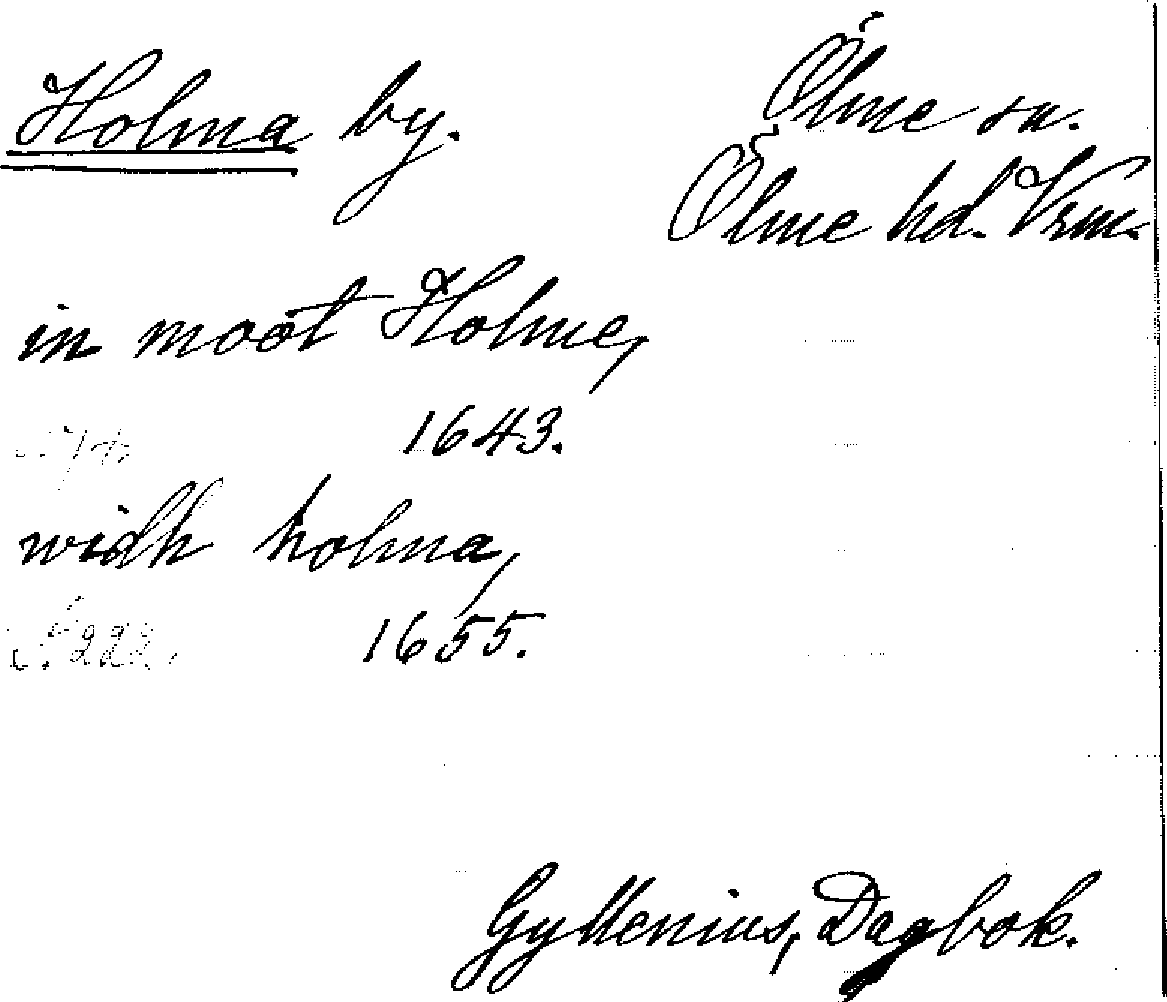 Holma by.
Ölme sn.
Ölme hd. Vrm.
in moot Holme,
1643.
widh holma,
1655.
s. 222.
Gyllenius, Dagbok.